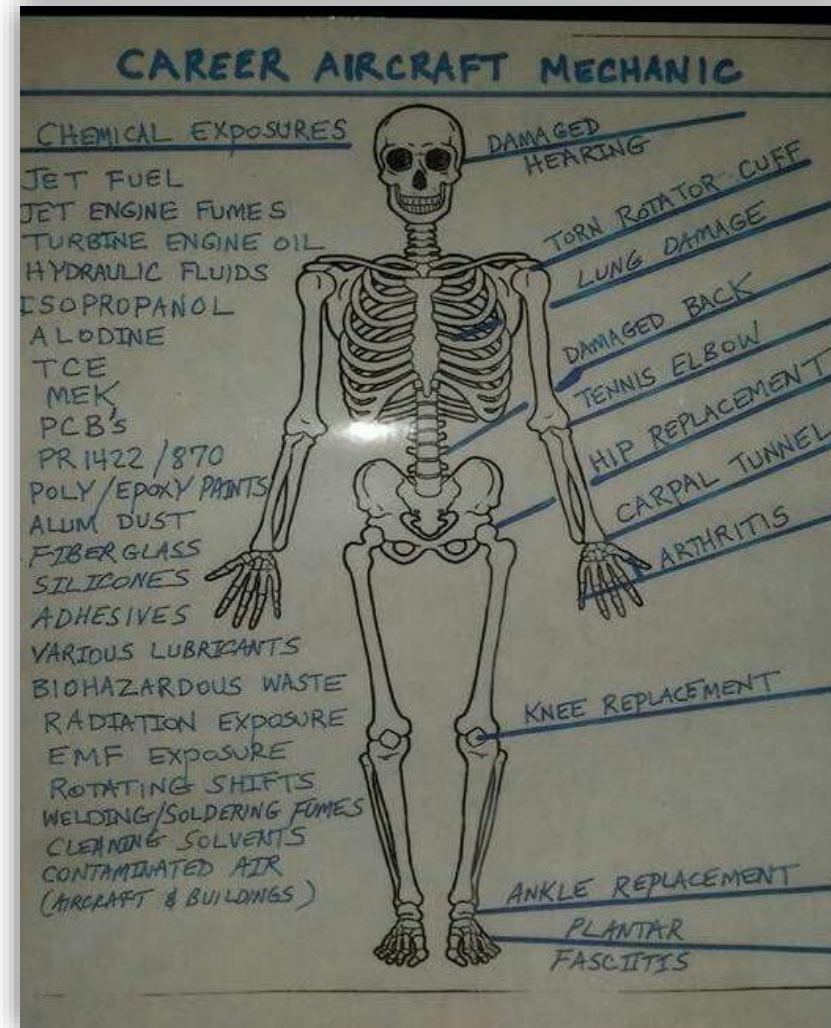 CAREER AIRCRAFT MECHANIC
CHEMICAL EXPOSURES
JET FUEL
JET ENGINE FUMES
TURBINE ENGINE OIL
HYDRAULIC FLUIDS
ISOPROPANOL
ALODINE
TCE
MEK
PCB's
PR1422/870
POLY/EPOXY PAINTS
ALUM DUST
FIBERGLASS
SILICONES
ADHESIVES
VARIOUS LUBRICANTS
BIOHAZARDOUS WASTE
RADIATION EXPOSURE
EMF EXPOSURE
ROTATING SHIFTS
WELDING/SOLDERING FUMES
CLEANING SOLVENTS
CONTAMINATED AIR
(AIRCRAFT & BUILDINGS)
DAMAGED
HEARING
TORN ROTATOR CUFF
LUNG DAMAGE
DAMAGED BACK
TENNIS ELBOW
HIP REPLACEMENT
CARPAL TUNNEL
ARTHRITIS
KNEE REPLACEMENT
ANKLE REPLACEMENT
PLANTAR
FASCIITIS